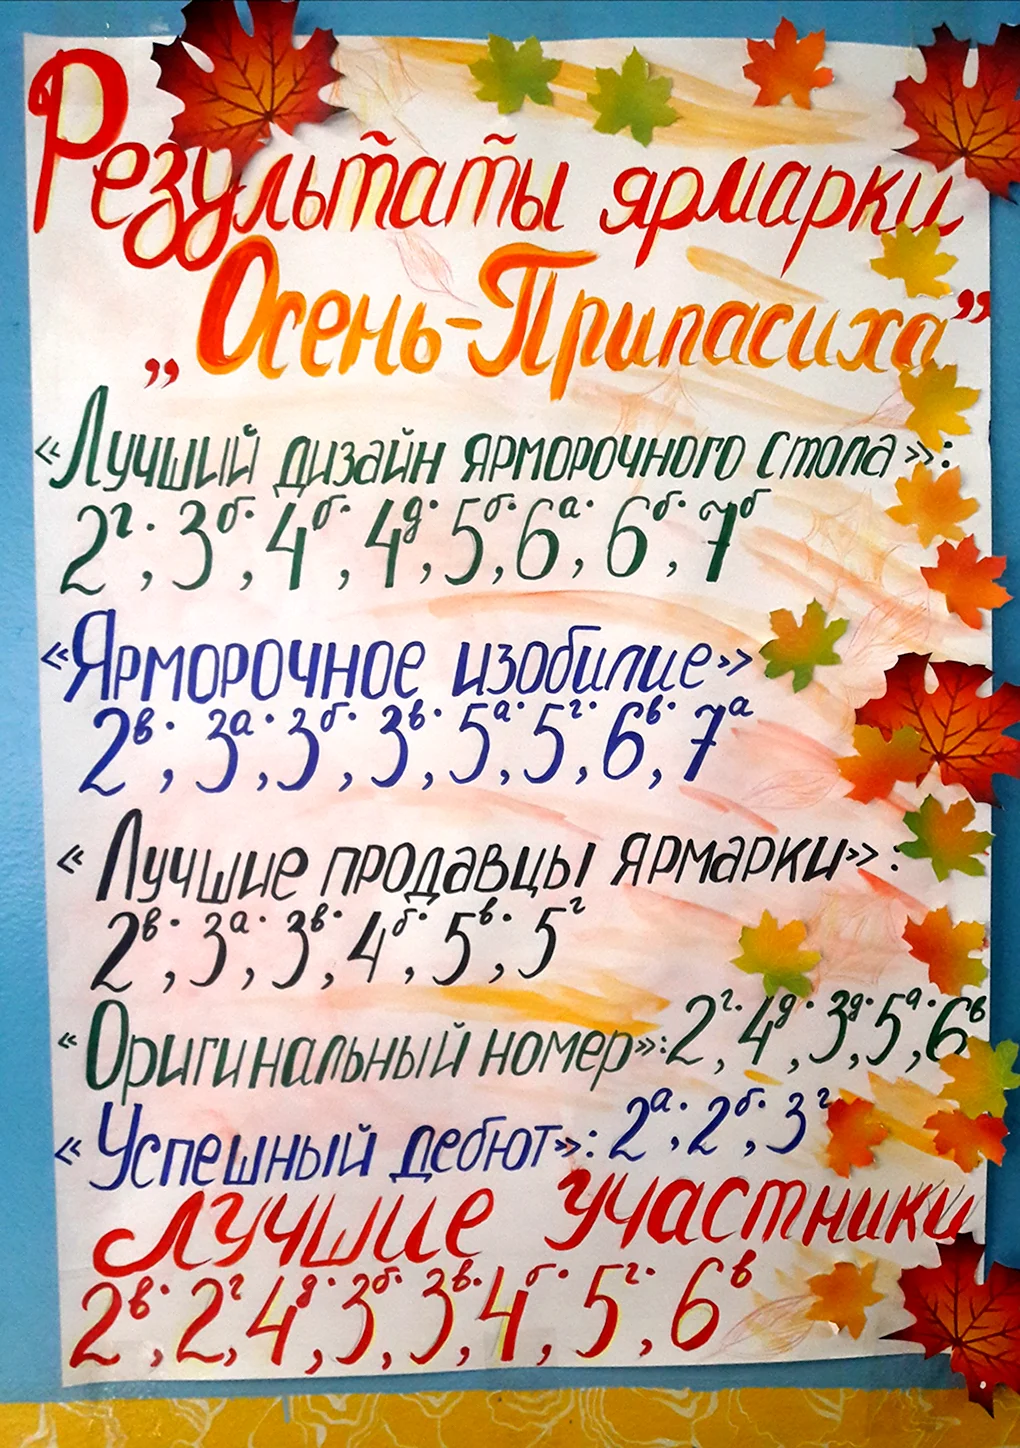 Результаты ярмарки
„Осень-Припасиха”
«Лучший дизайн ярморочного стола»:
2г., 3б., 4б., 4д., 5б., 6а., 6б., 7б
«Ярморочное изобилие»
2в., 3а., 3б., 3в., 5а., 5г., 6в., 7а
«Лучшие продавцы ярмарки»:
2в., 3а., 3в., 4б., 5в., 5г
«Оригинальный номер»: 2г., 4д., 3д., 5а., 6в
«Успешный дебют»: 2а., 2б., 3г
Лучшие участники
2в., 2г, 4д., 3б., 3в., 4б., 5г., 6в